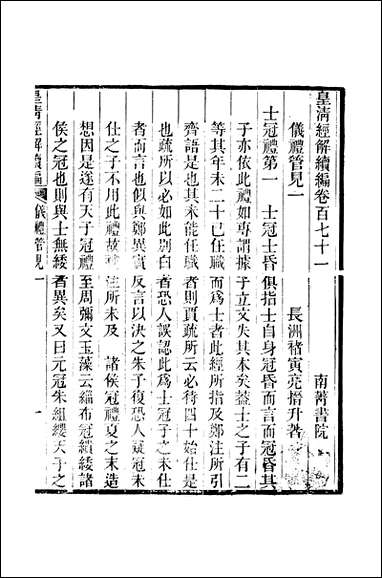 皇清經解續編卷百七十一
南菁書院
儀禮管見一
長洲褚寅亮搢升著
士冠禮第一　士冠士昏俱指士自身冠昏而言而冠昏其
子亦依此禮如專謂據子立文失其本矣蓋士之子有二
等其年未二十已任職而爲士者此經所指及鄭注所引
齊語是也其未能任職者則賈疏所云必待四十始仕是
也疏所以必如此別白者恐人誤認此爲士冠子之未仕
者而言也似與鄭異實反言以決之朱子復恐人疑冠未
仕之子不用此禮故注所未及　諸侯冠禮夏之末造
想因是遂有天子冠禮至周彌文玉藻云緇布冠繢緌諸
侯之冠也則與士無緌者異矣又曰元冠朱組纓天子之
皇清經解續編
儀禮管見一
一